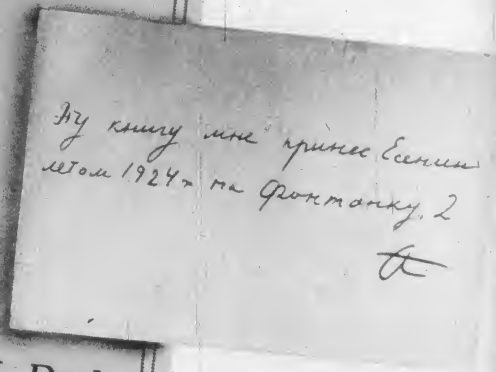 Эту книгу мне принес Есенин
летом 1924 г на Фонтанку, 2
А